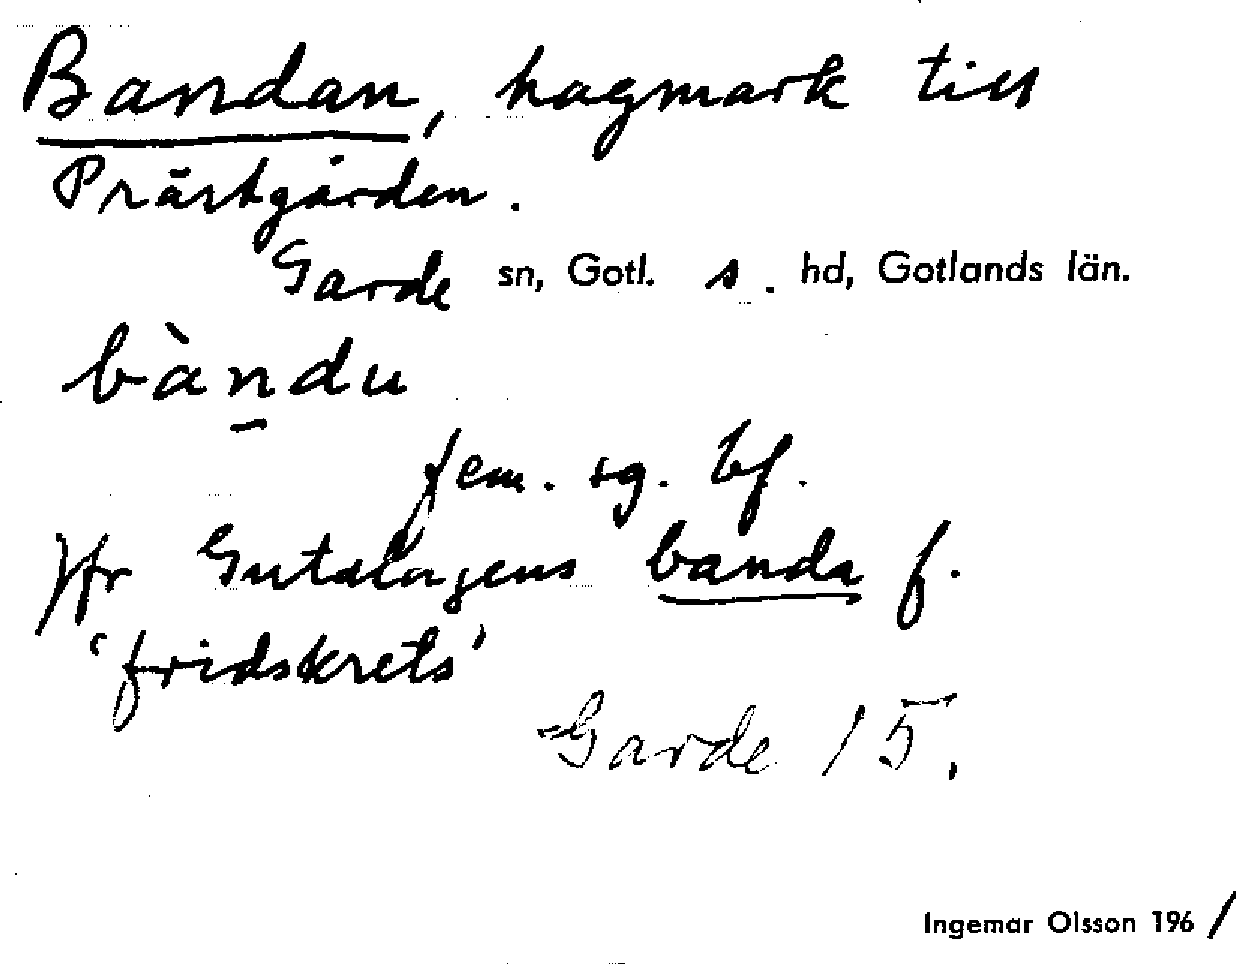 Bandan, hagmark till
Prästgården.
Garde sn, Gotl. s. hd, Gotlands län.
bàn̠du
fem. sg. bf.
Jfr Gutalagens banda f.
'fridskrets'
Garde 15.
Ingemar Olsson 1961